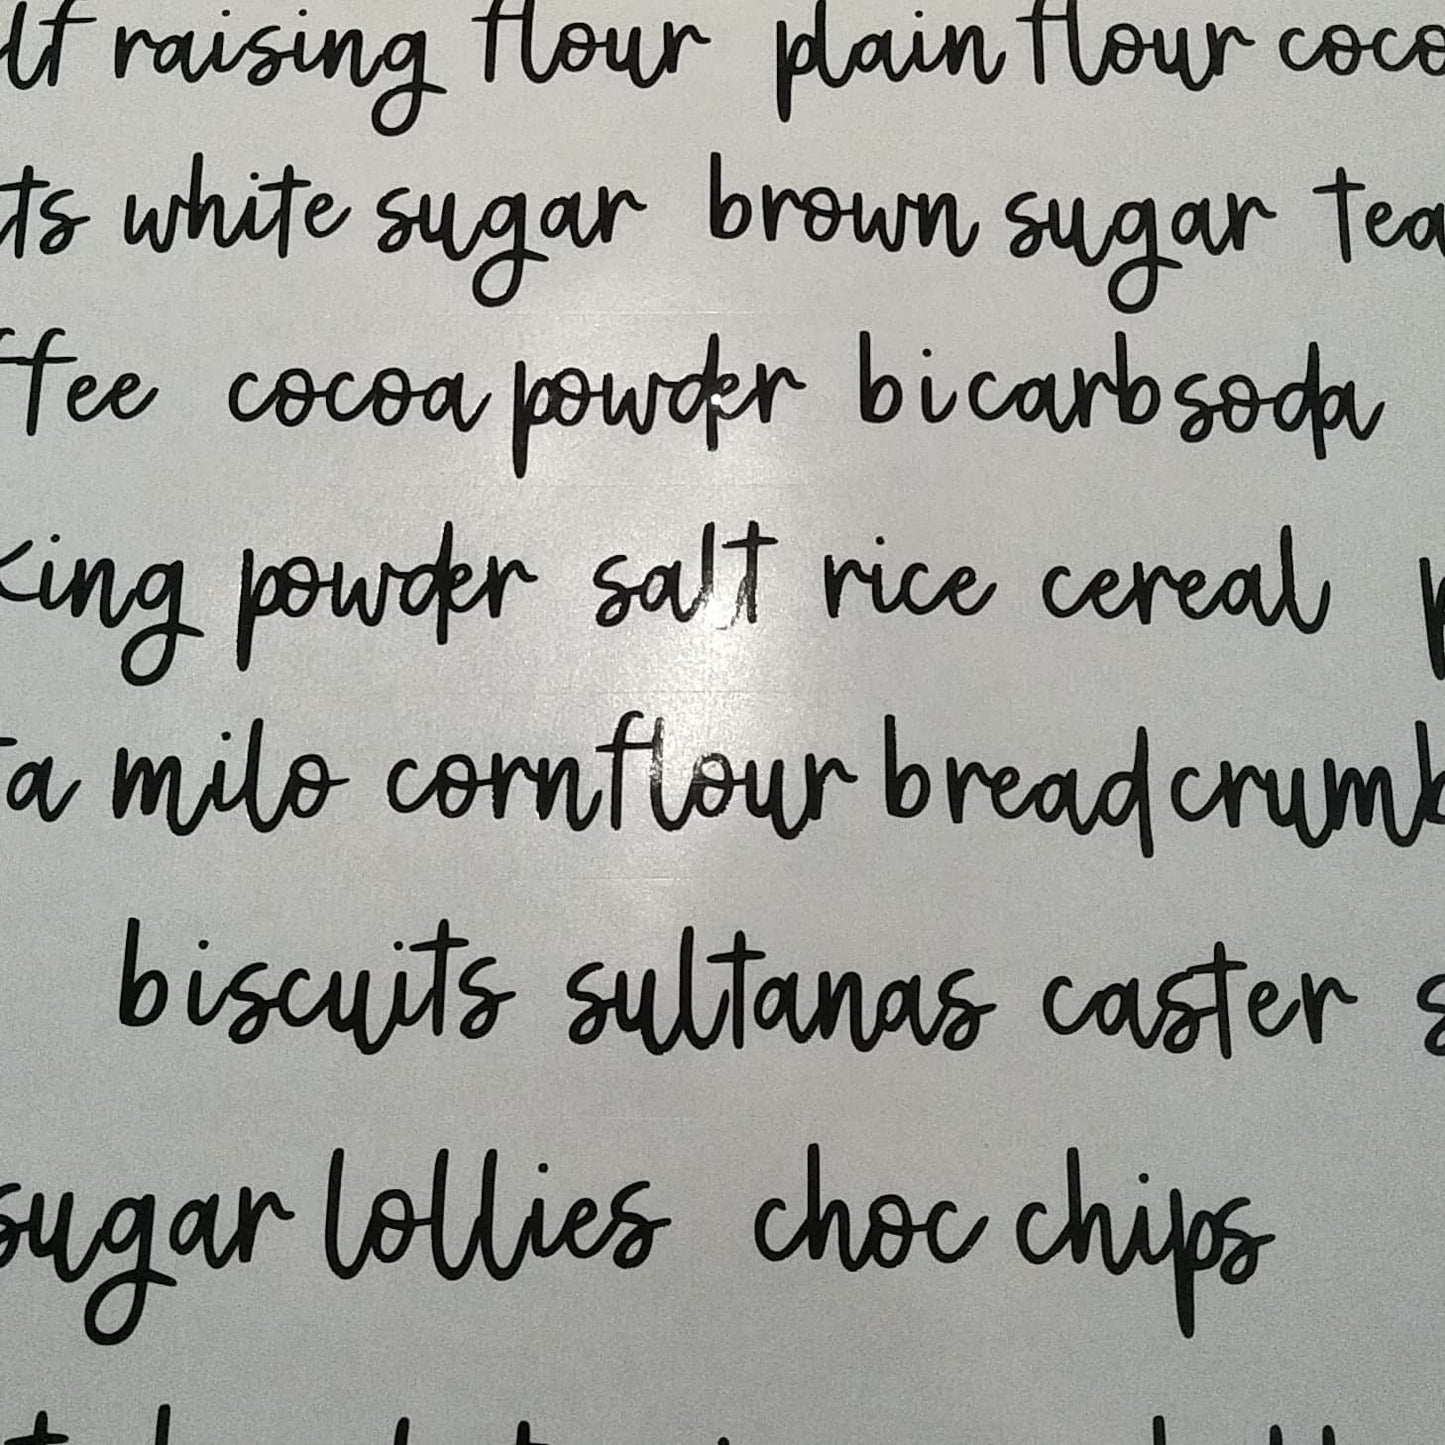 lf raising flour plain flour coco
ts white sugar brown sugar tea
ffee cocoa powder bicarb soda
king powder salt rice cereal
ta milo cornflour breadcrumb
biscuits sultanas caster s
sugar lollies choc chips